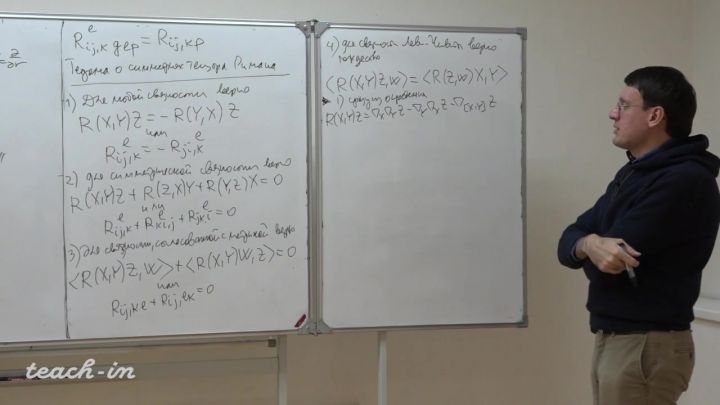 R^e_{ij,k} g_{ep} = R_{ij,kp}
Теорема о симметриях тензора Римана
1) Для любой связности верно
R(X,Y)Z = -R(Y,X)Z
или
R^e_{ij,k} = -R^e_{ji,k}
2) для симметрической связности верно
R(X,Y)Z + R(Z,X)Y + R(Y,Z)X = 0
или
R^e_{ij,k} + R^e_{ki,j} + R^e_{jk,i} = 0
3) Для связности, согласованной с метрикой верно
<R(X,Y)Z,W> + <R(X,Y)W,Z> = 0
или
R_{ij,ke} + R_{ij,ek} = 0
4) для связности Леви-Чивиты верно
тождество
<R(X,Y)Z,W> = <R(Z,W)X,Y>
1) следует из определения
R(X,Y)Z = ∇_X∇_Y Z - ∇_Y∇_X Z - ∇_{[X,Y]} Z
teach-in